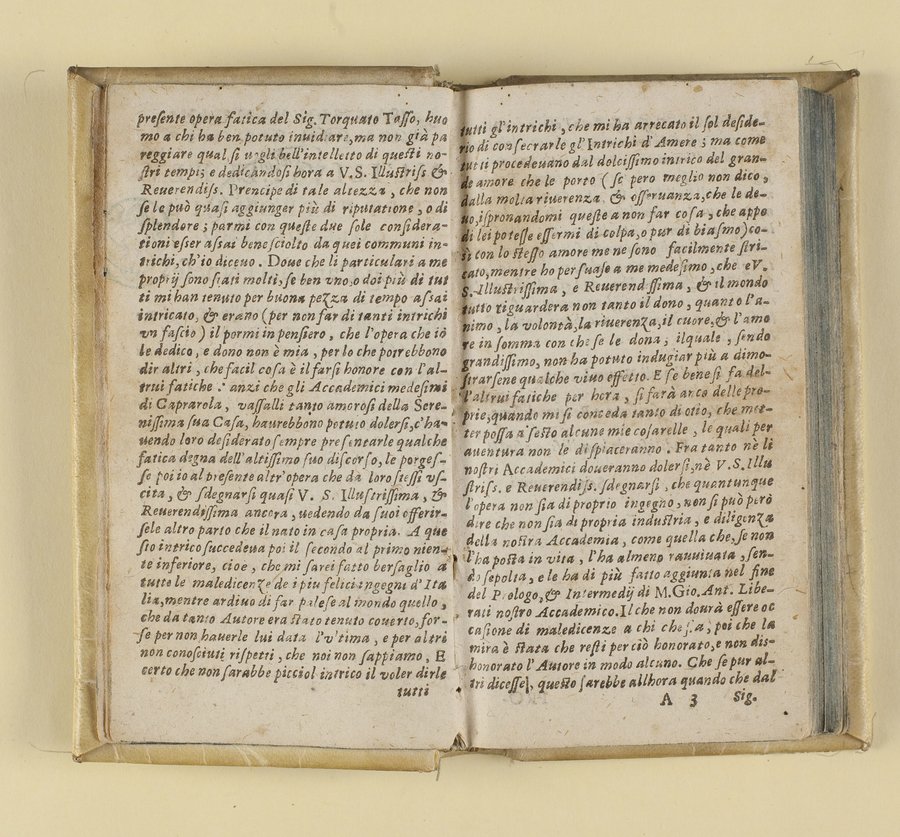 presente opera fatica del Sig. Torquato Tasso, huo
mo a chi ha ben potuto inuidiare, ma non già pa
reggiare qual si uogli bell'intelletto di questi no-
stri tempi; e dedicandosi hora a V.S. Illustriss &
Reuerendiss. Prencipe di tale altezza, che non
se le può quasi aggiunger più di riputatione, o di
splendore; parmi con queste due sole considera-
tioni esser assai bene sciolto da quei communi in-
trichi, ch'io diceuo. Doue che li particulari a me
proprij sono stati molti, se ben uno, o doi più di tut
ti mi han tenuto per buona pezza di tempo assai
intricato, & erano (per non far di tanti intrichi
vn fascio) il pormi in pensiero, che l'opera che iò
le dedico, e dono non è mia, per lo che potrebbono
dir altri, che facil cosa è il farsi honore con l'al-
trui fatiche: anzi che gli Accademici medesimi
di Caprarola, vassalli tanto amorosi della Sere-
nissima sua Casa, haurebbono potuto dolersi, c'ha-
uendo loro desiderato sempre presentarle qualche
fatica degna dell'altissimo suo discorso, le porges-
se poi io al presente altr'opera che da loro stessi vs-
cita, & sdegnarsi quasi V. S. Illustrissima, &
Reuerendissima ancora, uedendo da suoi offerir-
sele altro parto che il nato in casa propria. A que
sto intrico succedeua poi il secondo al primo nien-
te inferiore, cioe, che mi sarei fatto bersaglio a
tutte le maledicenze de i piu felici ingegni d'Ita
lia, mentre ardiuo di far palese al mondo quello,
che da tanto Autore era stato tenuto couerto, for-
se per non hauerle lui data l'vltima, e per altri
non conosciuti rispetti, che noi non sappiamo, E
certo che non sarabbe picciol intrico il voler dirle
tutti
tutti gl'intrichi, che mi ha arrecato il sol deside-
rio di consecrarle gl'Intrichi d'Amore; ma come
tutti procedeuano dal dolcissimo intrico del gran-
de amore che le porto (se pero meglio non dico,
dalla molta riuerenza & osseruanza, che le de-
uo, ispronandomi queste a non far cosa, che appo
di lei potesse essermi di colpa, o pur di biasmo) co-
sì con lo stesso amore me ne sono facilmente stri-
cato, mentre ho persuaso a me medesimo, che e V.
S. Illustrissima, e Reuerendissima, & il mondo
tutto riguardera non tanto il dono, quanto l'a-
nimo, la volontà, la riuerenza, il cuore, & l'amo
re in somma con che se le dona; ilquale, sendo
grandissimo, non ha potuto indugiar più a dimo-
strarsene qualche viuo effetto. E se bene si fa del-
l'altrui fatiche per hora, si farà anco delle pro-
prie, quando mi si conceda tanto di otio, che met-
ter possa a sesto alcune mie cosarelle, le quali per
auentura non le dispiaceranno. Fra tanto nè li
nostri Accademici doueranno dolersi, nè V.S. Illu
striss. e Reuerendiss. sdegnarsi, che quantunque
l'opera non sia di proprio ingegno, non si può però
dire che non sia di propria industria, e diligenza
della nostra Accademia, come quella che, se non
l'ha posta in vita, l'ha almeno rauuiuata, sen-
do sepolta, e le ha di più fatto aggiunta nel fine
del Prologo, & Intermedij di M. Gio. Ant. Libe-
rati nostro Accademico. Il che non dourà essere oc
casione di maledicenze a chi che sia, poi che la
mira è stata che resti perciò honorato, e non dis-
honorato l'Autore in modo alcuno. Che se pur al-
tri dicesse, questo sarebbe allhora quando che dal
A 3 Sig.